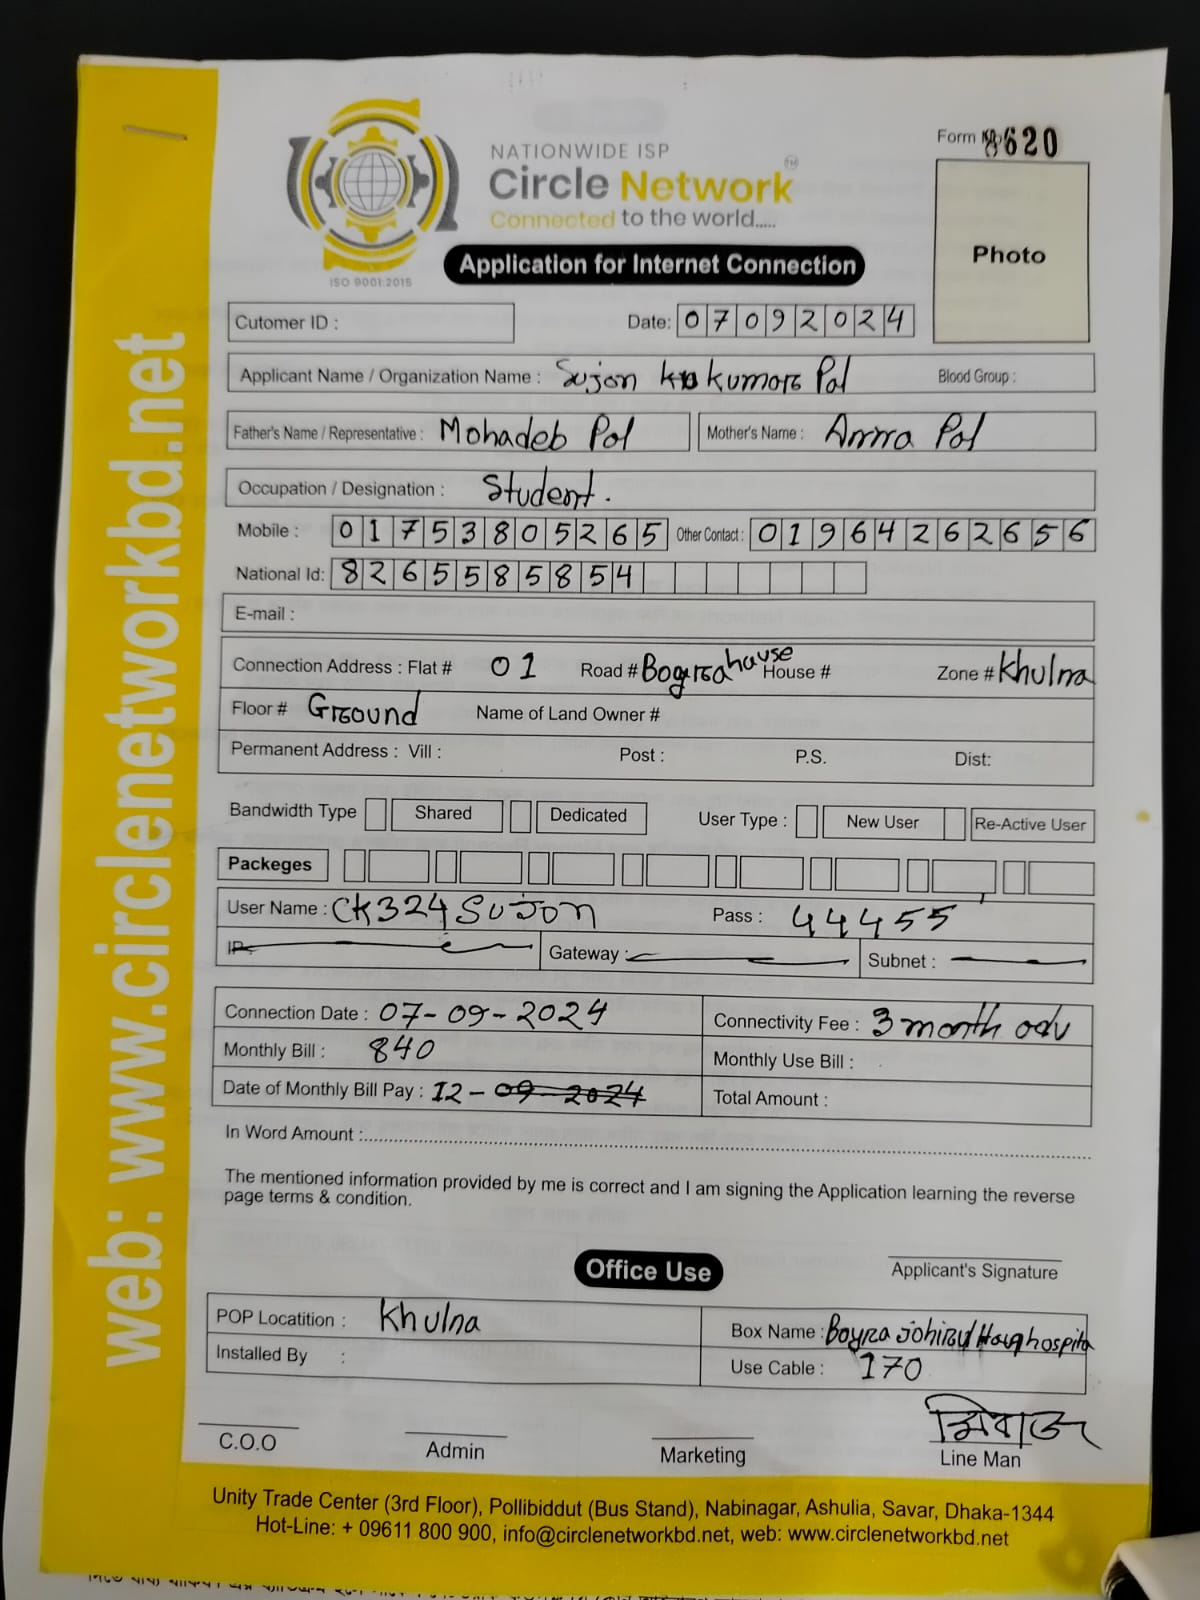 Form No 8620
NATIONWIDE ISP
Circle Network TM
Connected to the world.....
ISO 9001:2015
Application for Internet Connection
Photo
Cutomer ID :
Date: 07092024
Applicant Name / Organization Name : Sujon kumar Pal Blood Group :
Father's Name / Representative : Mohadeb Pol Mother's Name : Anna Pal
Occupation / Designation : Student.
Mobile : 01753805265 Other Contact : 01964262656
National Id: 8265585854
E-mail :
Connection Address : Flat # 01 Road # Bogra house House # Zone # Khulna
Floor # Ground Name of Land Owner #
Permanent Address : Vill : Post : P.S. Dist:
Bandwidth Type Shared Dedicated User Type : New User Re-Active User
Packeges
User Name : CK324SUJON Pass : 44455
IP Gateway : Subnet :
Connection Date : 07-09-2024 Connectivity Fee : 3 month adv
Monthly Bill : 840 Monthly Use Bill :
Date of Monthly Bill Pay : 12-09-2024 Total Amount :
In Word Amount :
The mentioned information provided by me is correct and I am signing the Application learning the reverse
page terms & condition.
Applicant's Signature
Office Use
POP Locatition : Khulna Box Name : Boyra hospital
Installed By : Use Cable : 170
C.O.O Admin Marketing Line Man
Unity Trade Center (3rd Floor), Pollibiddut (Bus Stand), Nabinagar, Ashulia, Savar, Dhaka-1344
Hot-Line: + 09611 800 900, info@circlenetworkbd.net, web: www.circlenetworkbd.net
web: www.circlenetworkbd.net